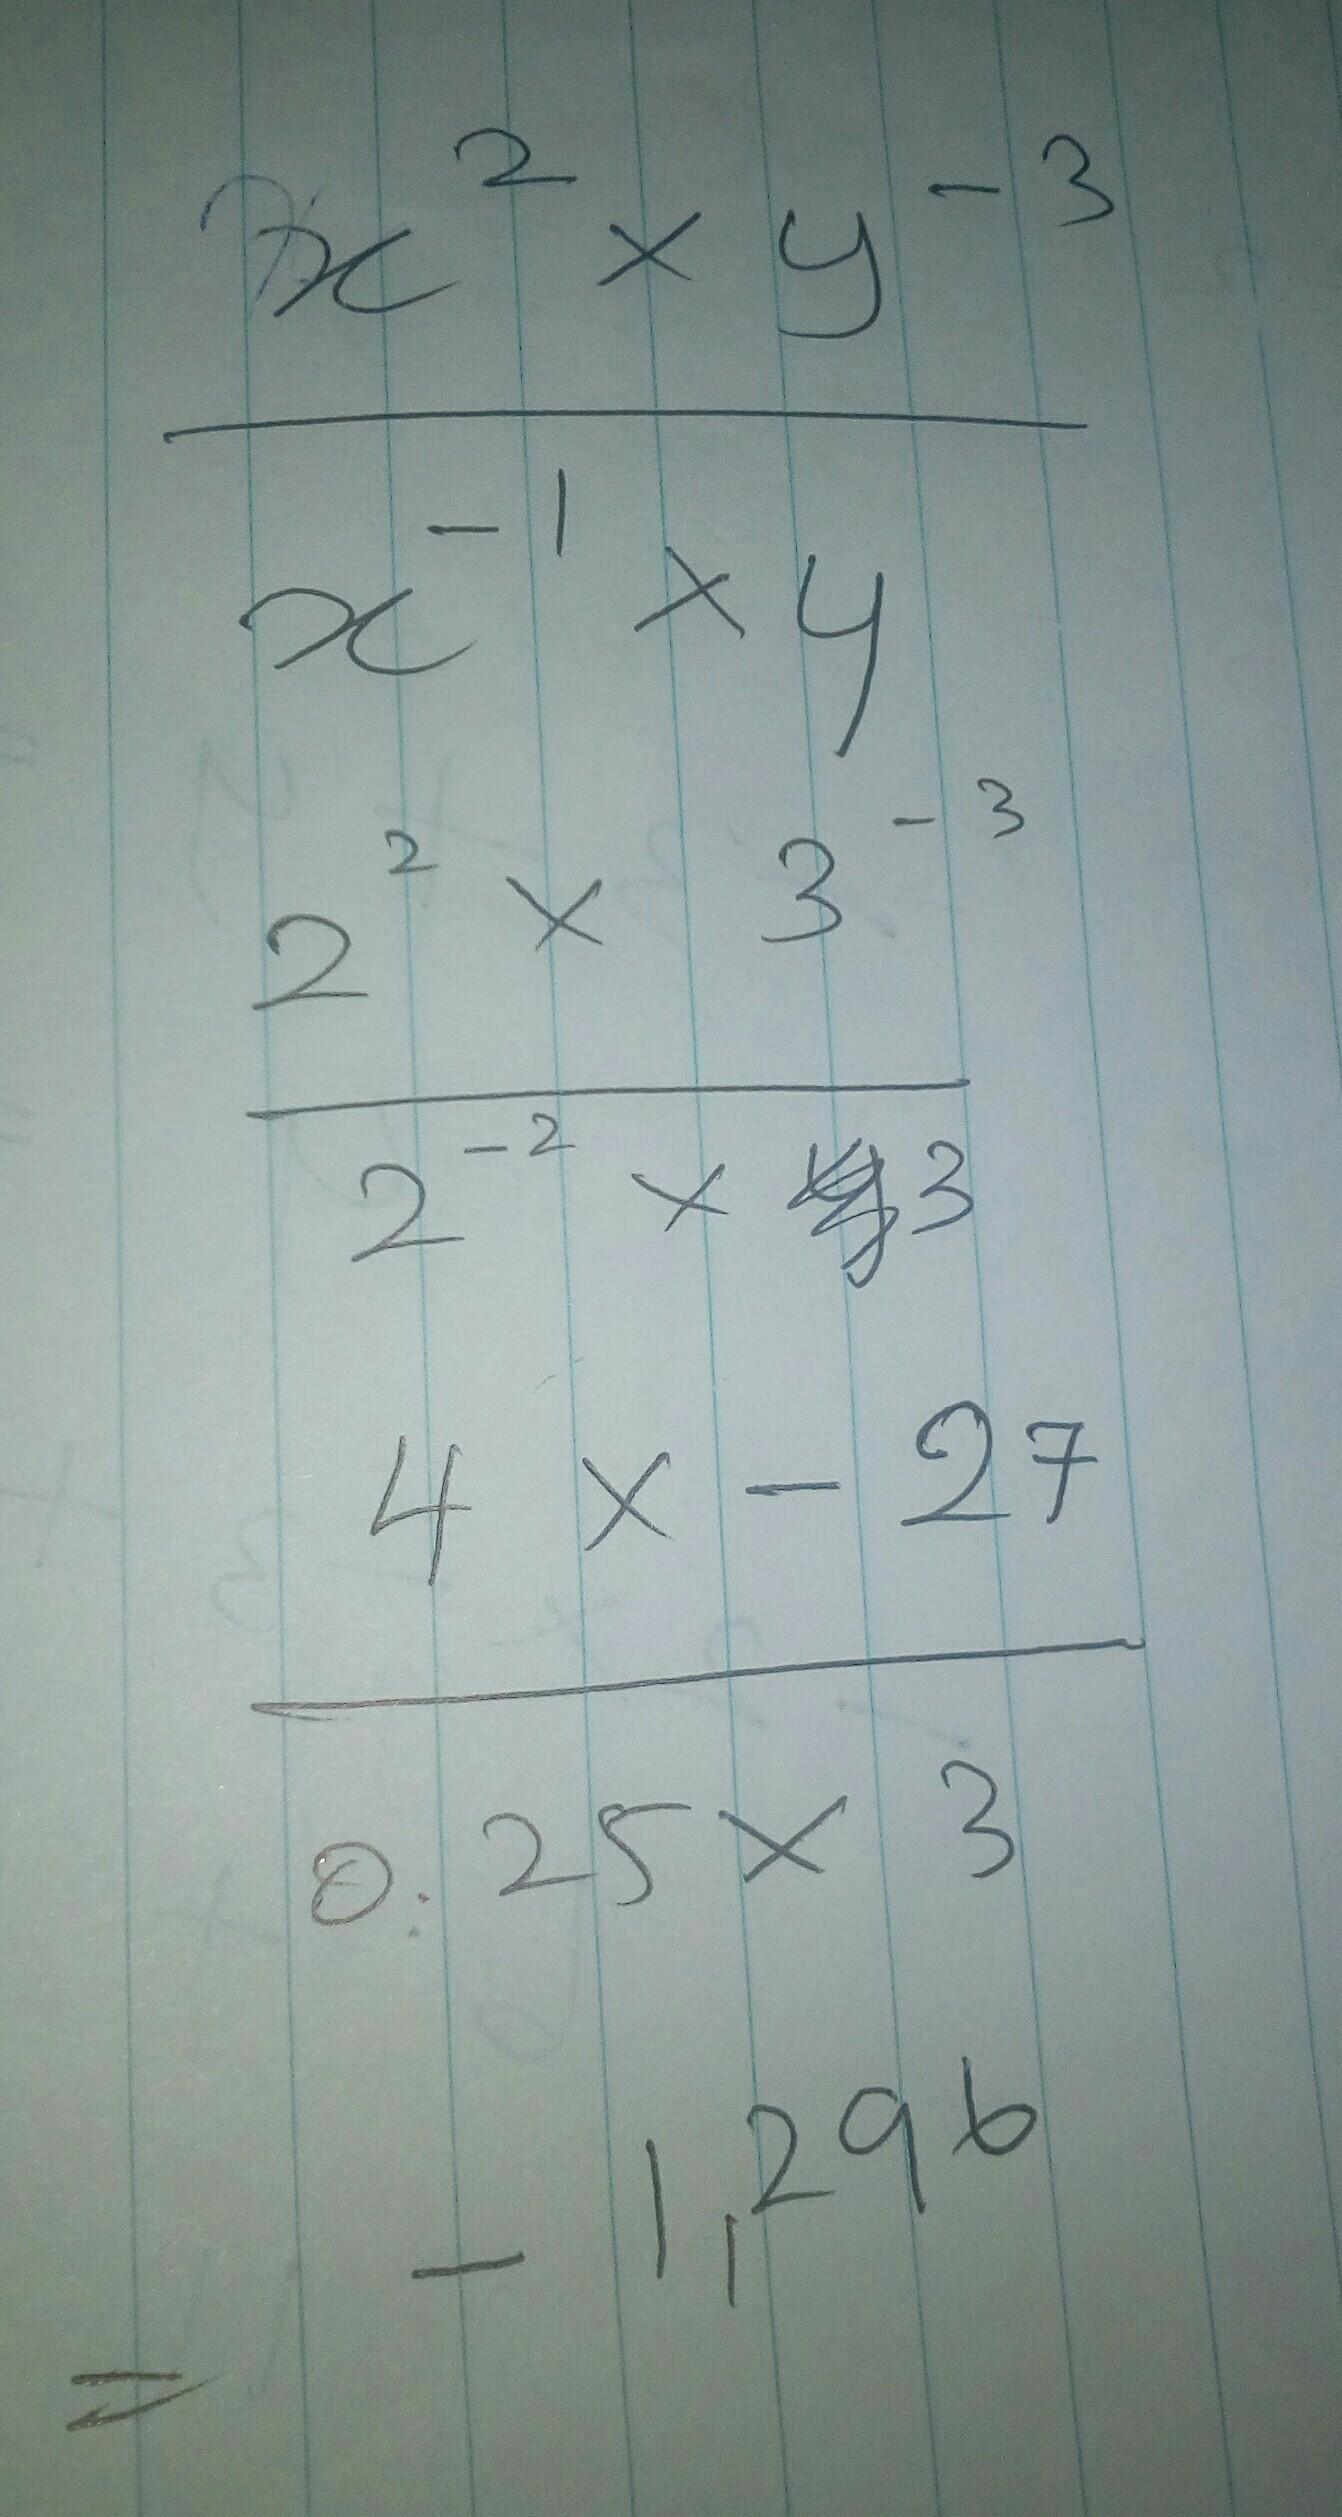 x² × y⁻³
x⁻¹ × y
2² × 3⁻³
2⁻² × 3
4 × - 27
0.25 × 3
- 1,296
=